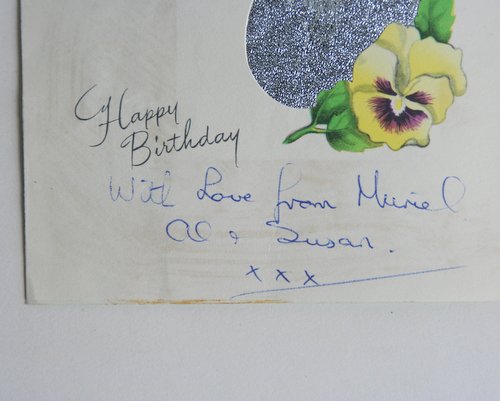 Happy
Birthday
With Love from Muriel
Al + Susan.
x x x